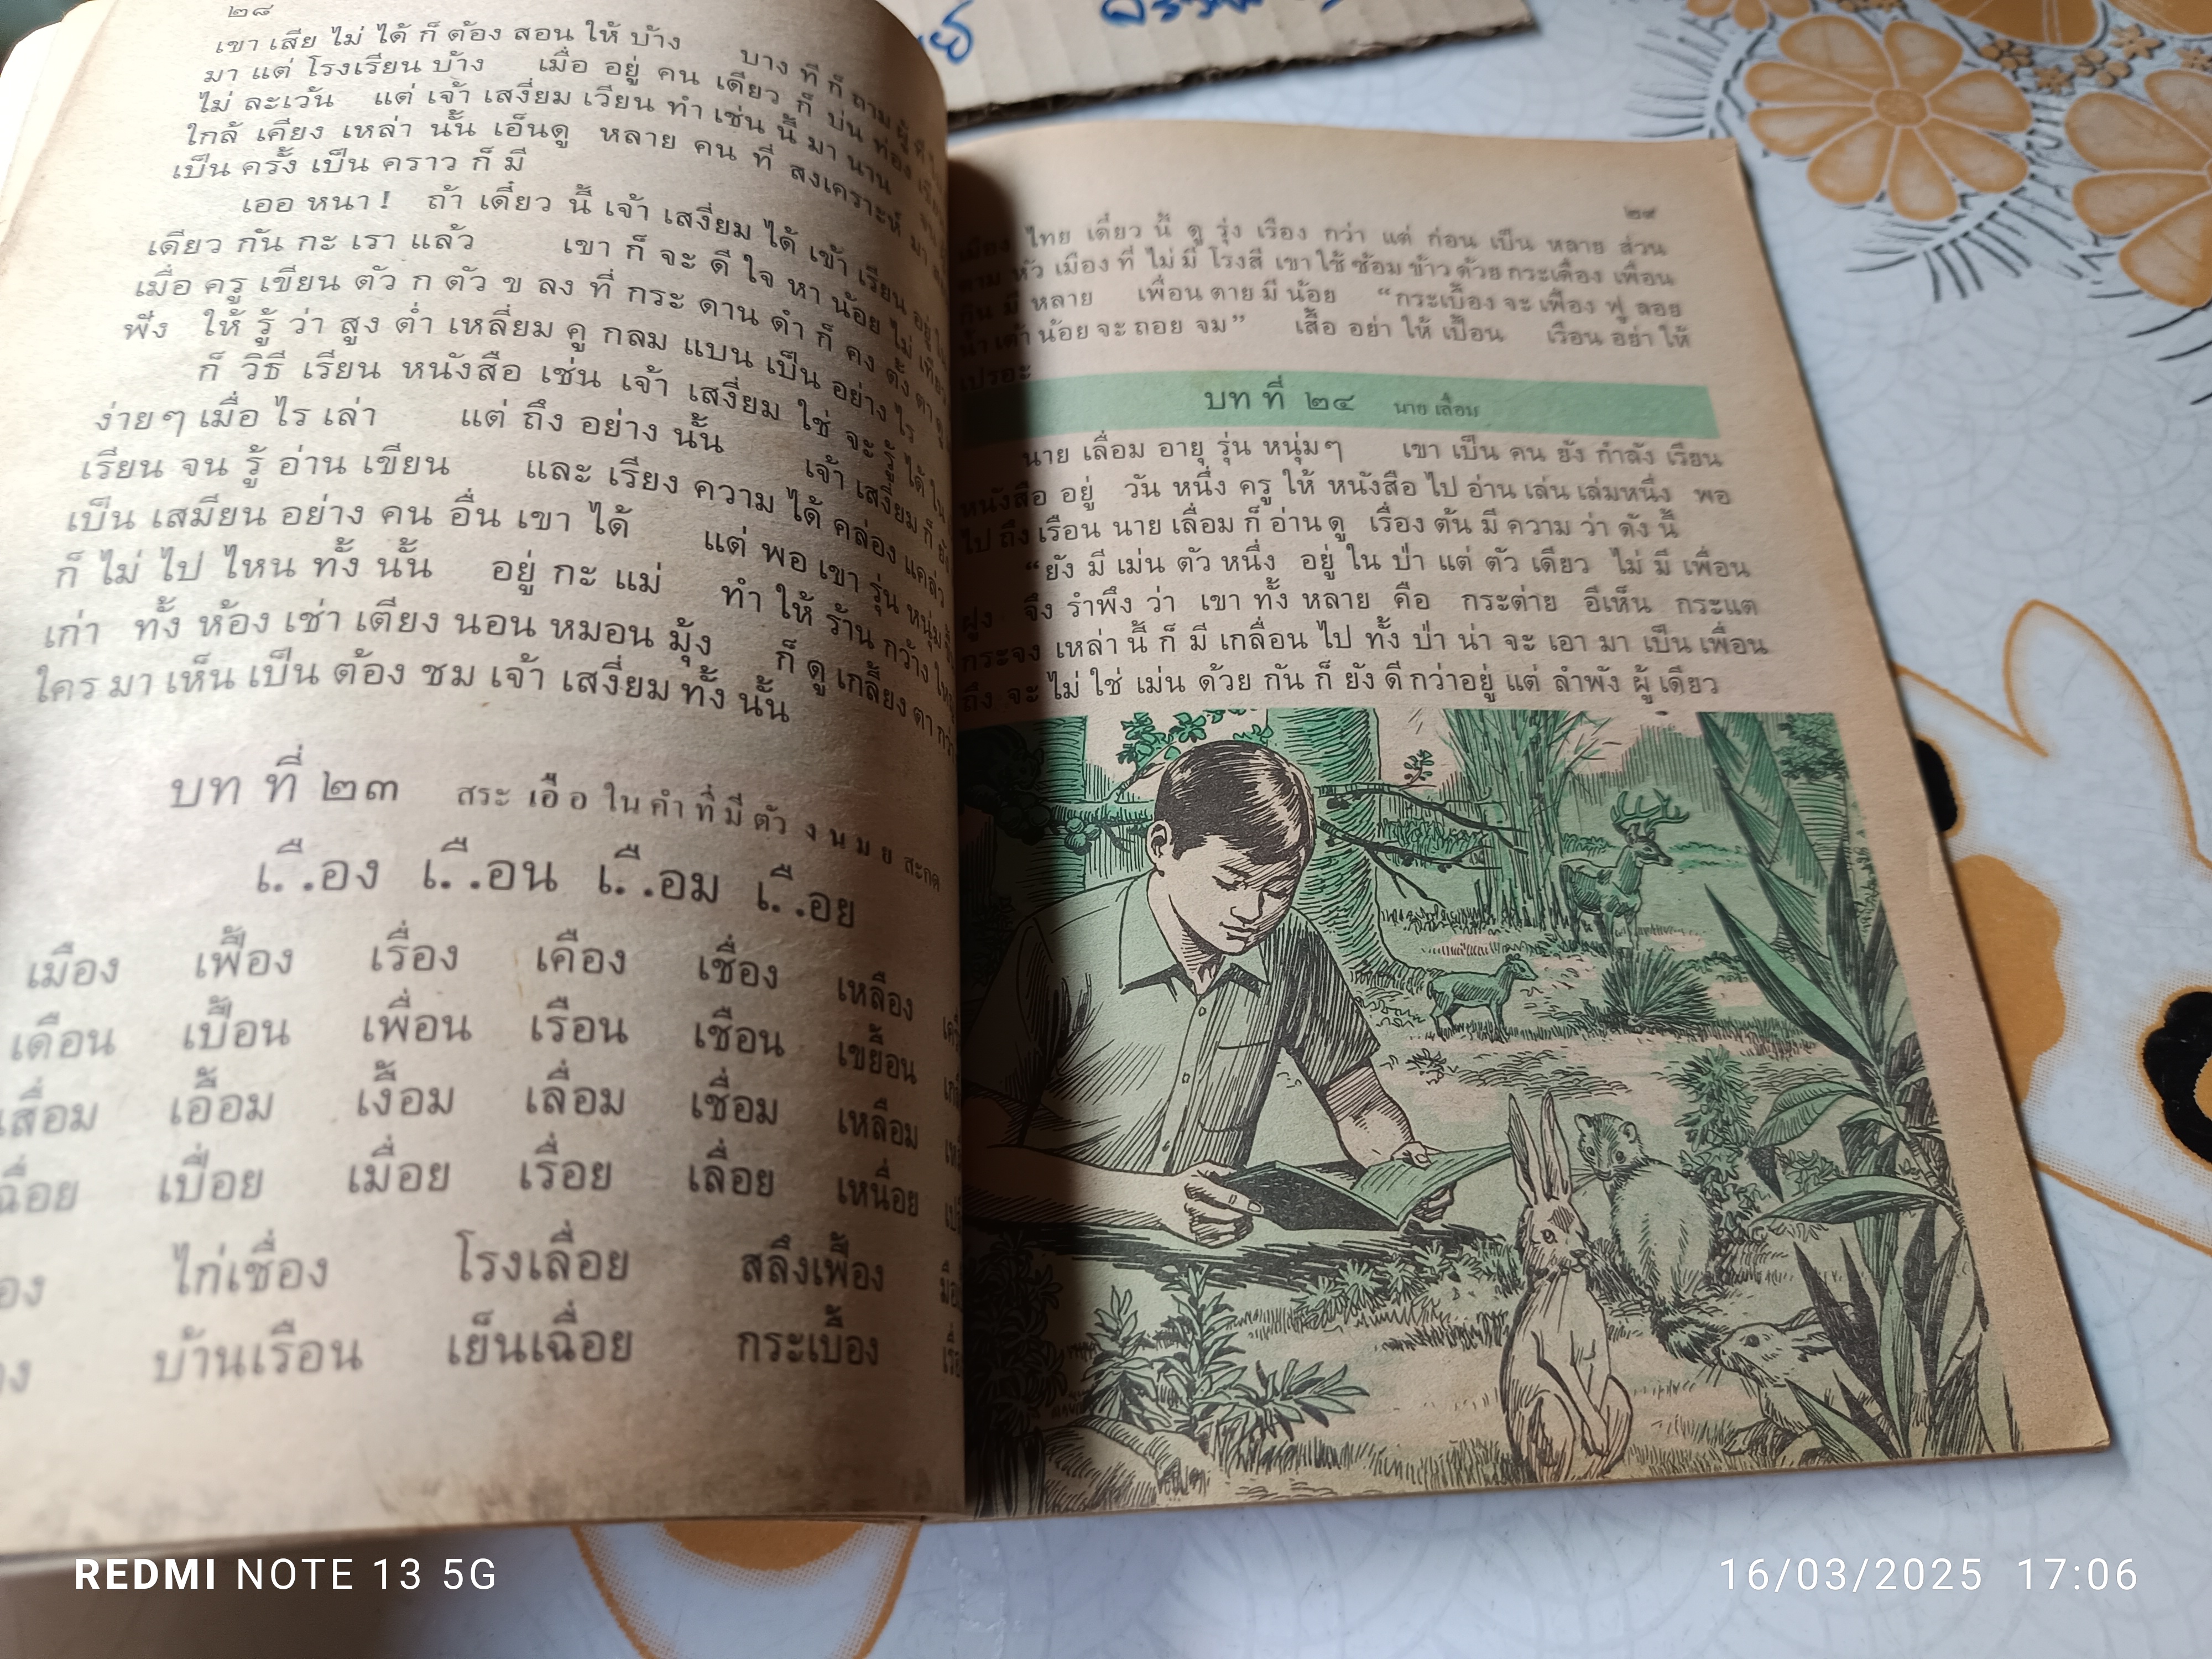 ๒๘
เขา เสีย ไม่ ได้ ก็ ต้อง สอน ให้ บ้าง บาง ที ก็ ถาม ผู้
มา แต่ โรงเรียน บ้าง เมื่อ อยู่ คน เดียว ก็ บ่น ท่อง
ไม่ ละเว้น แต่ เจ้า เสงี่ยม เวียน ทำ เช่น นี้ มา นาน
ใกล้ เคียง เหล่า นั้น เอ็นดู หลาย คน ที่ สงเคราะห์
เป็น ครั้ง เป็น คราว ก็ มี
เออ หนา ! ถ้า เดี๋ยว นี้ เจ้า เสงี่ยม ได้ เข้า เรียน อยู่
เดียว กัน กะ เรา แล้ว เขา ก็ จะ ดี ใจ หา น้อย ไม่
เมื่อ ครู เขียน ตัว ก ตัว ข ลง ที่ กระ ดาน ดำ ก็ คง ตั้ง ตา
ฟัง ให้ รู้ ว่า สูง ต่ำ เหลี่ยม คู กลม แบน เป็น อย่าง ไร
ก็ วิธี เรียน หนังสือ เช่น เจ้า เสงี่ยม ใช่ จะ รู้ ได้ ใน
ง่ายๆ เมื่อ ไร เล่า แต่ ถึง อย่าง นั้น เจ้า เสงี่ยม ก็ ยัง
เรียน จน รู้ อ่าน เขียน และ เรียง ความ ได้ คล่อง แคล่ว
เป็น เสมียน อย่าง คน อื่น เขา ได้ แต่ พอ เขา รุ่น หนุ่ม
ก็ ไม่ ไป ไหน ทั้ง นั้น อยู่ กะ แม่ ทำ ให้ ร้าน กว้าง
เก่า ทั้ง ห้อง เช่า เตียง นอน หมอน มุ้ง ก็ ดู เกลี้ยง ตา กว่า
ใคร มา เห็น เป็น ต้อง ชม เจ้า เสงี่ยม ทั้ง นั้น
บท ที่ ๒๓ สระ เอือ ใน คำ ที่ มี ตัว ง น ม ย สะกด
เ ื.. อง เ ื.. อน เ ื.. อม เ ื.. อย
เมือง เฟื้อง เรื่อง เคือง เชื่อง เหลือง
เดือน เปื้อน เพื่อน เรือน เชือน เขยื้อน
เสื่อม เอื้อม เงื้อม เลื่อม เชื่อม เหลือม
เฉื่อย เปื่อย เมื่อย เรื่อย เลื่อย เหนื่อย
ไก่เชื่อง โรงเลื่อย สลึงเฟื้อง
บ้านเรือน เย็นเฉื่อย กระเบื้อง
๒๙
เมือง ไทย เดี๋ยว นี้ ดู รุ่ง เรือง กว่า แต่ ก่อน เป็น หลาย ส่วน
ตาม หัว เมือง ที่ ไม่ มี โรงสี เขา ใช้ ซ้อม ข้าว ด้วย กระเดื่อง เพื่อน
กิน มี หลาย เพื่อน ตาย มี น้อย “กระเบื้อง จะ เฟื่อง ฟู ลอย
น้ำ เต้า น้อย จะ ถอย จม” เสื้อ อย่า ให้ เปื้อน เรือน อย่า ให้
เปรอะ
บท ที่ ๒๔ นาย เลื่อม
นาย เลื่อม อายุ รุ่น หนุ่มๆ เขา เป็น คน ยัง กำลัง เรียน
หนังสือ อยู่ วัน หนึ่ง ครู ให้ หนังสือ ไป อ่าน เล่น เล่มหนึ่ง พอ
ไป ถึง เรือน นาย เลื่อม ก็ อ่าน ดู เรื่อง ต้น มี ความ ว่า ดัง นี้
“ยัง มี เม่น ตัว หนึ่ง อยู่ ใน ป่า แต่ ตัว เดียว ไม่ มี เพื่อน
ฝูง จึง รำพึง ว่า เขา ทั้ง หลาย คือ กระต่าย อีเห็น กระแต
กระจง เหล่า นี้ ก็ มี เกลื่อน ไป ทั้ง ป่า น่า จะ เอา มา เป็น เพื่อน
ถึง จะ ไม่ ใช่ เม่น ด้วย กัน ก็ ยัง ดี กว่า อยู่ แต่ ลำพัง ผู้ เดียว
REDMI NOTE 13 5G
16/03/2025 17:06